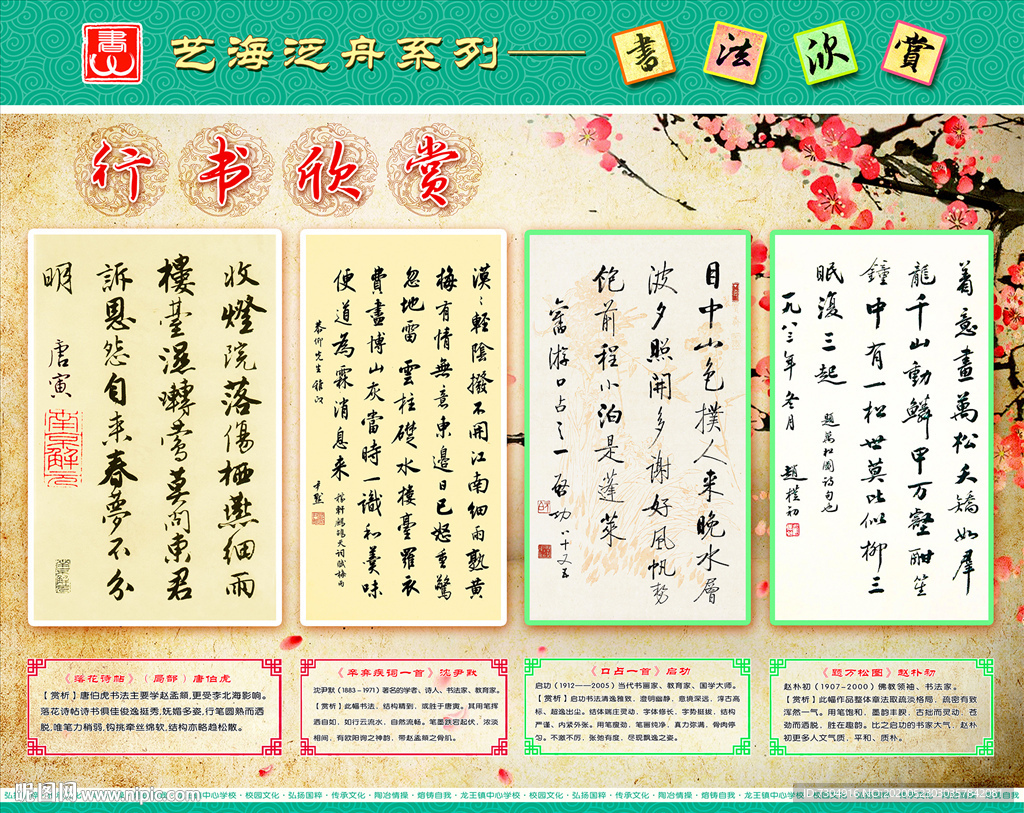 書
艺海泛舟系列——
書法欣賞
行书欣赏
收燈院落傷栖燕細雨
樓臺濕囀鶯莫問東君
訴恩怨自来春夢不分
明
唐寅
南京解元
漠〻輕陰撥不開江南細雨熟黄
梅有情無意東邊日已怒重驚
忽地雷 雲柱礎水樓臺羅衣
費盡博山灰當時一識和羹味
便道為霖消息来
稼軒鷓鴣天詞賦梅雨
尹默
目中山色撲人来晚水層
波夕照開多謝好風帆勢
飽前程小泊是蓬萊
舊游口占之一 啓功
着意畫萬松夭矯如群
龍千山動鱗甲万壑酣笙
鐘中有一松世莫比似柳三
眠復三起
題萬松圖詩句也
一九八三年冬月
趙樸初
《落花诗帖》（局部）唐伯虎
【赏析】唐伯虎书法主要学赵孟頫,更受李北海影响。
落花诗帖诗书俱佳俊逸挺秀,妩媚多姿,行笔圆熟而洒
脱,唯笔力稍弱,钩挑牵丝绵软,结构亦略趋松散。
《辛弃疾词一首》沈尹默
沈尹默（1883-1971）著名的学者、诗人、书法家、教育家。
【赏析】此幅书法，结构精到，或胜于唐寅。其用笔挥
洒自如，如行云流水，自然流畅。笔墨跌宕起伏，浓淡
相间，有欧阳询之神韵，带赵孟頫之骨肌。
《口占一首》启功
启功（1912——2005）当代书画家、教育家、国学大师。
【赏析】启功书法清逸雅致、澄明幽静，意境深远，淳古高
标、超逸出尘。结体端庄灵动，字体修长，字势挺拔，结构
严谨、内紧外张。用笔瘦劲，笔画纯净，真力弥满，骨肉停
匀。不激不厉，张弛有度，尽现飘逸之姿。
《题万松图》赵朴初
赵朴初（1907-2000）佛教领袖、书法家。
【赏析】此幅作品整体章法取疏淡格局，疏密有致
浑然一气。用笔饱和，墨韵丰腴，古拙而灵动、苍
劲而洒脱，胜在趣韵。比之启功的书家大气，赵朴
初更多人文气质，平和、质朴。
昵图网 www.nipic.com
中心学校·校园文化·弘扬国粹·传承文化·陶冶情操·熔铸自我·龙王镇中心学校·校园文化·弘扬国粹·传承文化·陶冶情操·熔铸自我·龙王镇中心学校